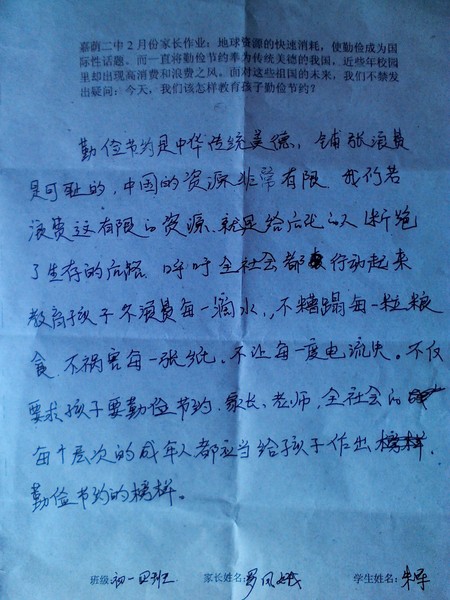 嘉荫二中2月份家长作业：地球资源的快速消耗，使勤俭成为国
际性话题。而一直将勤俭节约奉为传统美德的我国，近些年校园
里却出现高消费和浪费之风。面对这些祖国的未来，我们不禁发
出疑问：今天，我们该怎样教育孩子勤俭节约？
勤俭节约是中华传统美德，铺张浪费
是可耻的，中国的资源非常有限，我们若
浪费这有限的资源、就是给后代的人断绝
了生存的后路。呼吁全社会都行动起来
教育孩子不浪费每一滴水，不糟蹋每一粒粮
食、不祸害每一张纸、不让每一度电流失。不仅
要求孩子要勤俭节约、家长、老师，全社会的
每个层次的成年人都应当给孩子作出
勤俭节约的榜样。
班级：初一四班 家长姓名：罗凤 学生姓名：朱